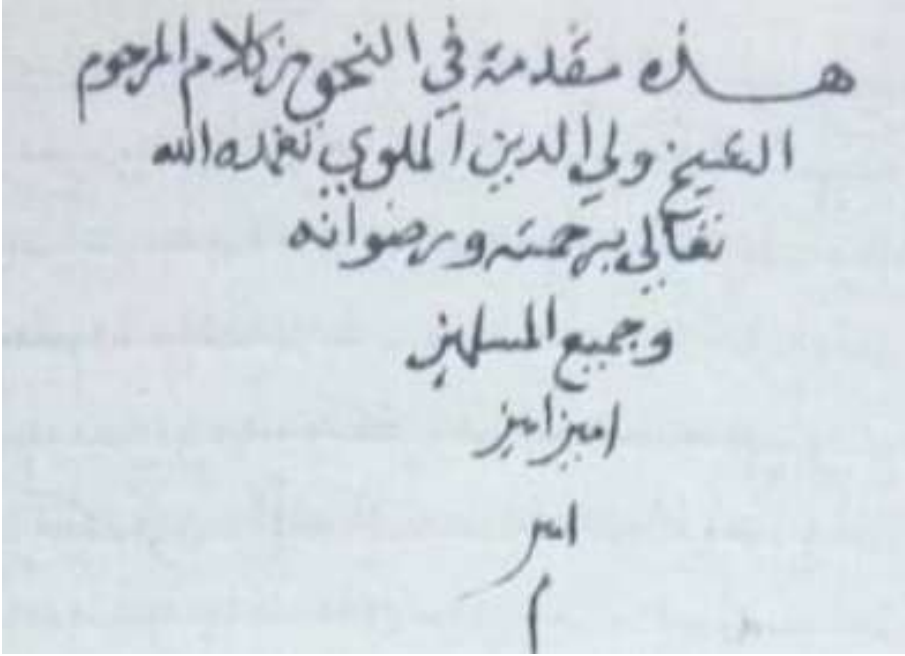 هذه مقدمة في النحو من كلام المرحوم
الشيخ ولي الدين الملوي تغمده الله
تعالى برحمته ورضوانه
وجميع المسلمين
امين امين
امين
م